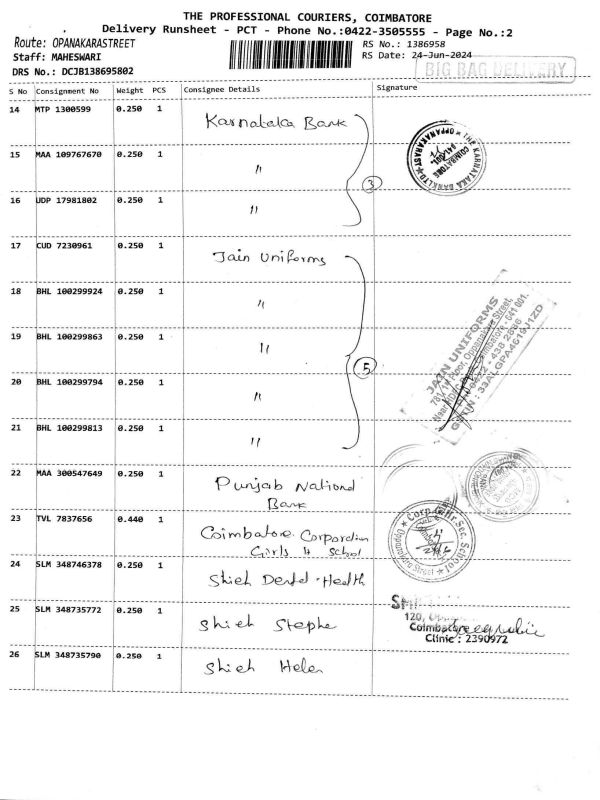 THE PROFESSIONAL COURIERS, COIMBATORE
Delivery Runsheet - PCT - Phone No.:0422-3505555 - Page No.:2
Route: OPANAKARASTREET
RS No.: 1386958
Staff: MAHESWARI
RS Date: 24-Jun-2024
DRS No.: DCJB138695802
BIG BAG DELIVERY
S No Consignment No Weight PCS Consignee Details Signature
14 MTP 1300599 0.250 1 Karnataka Bank
15 MAA 109767670 0.250 1 "
3
16 UDP 17981802 0.250 1 "
THE KARNATAKA BANK LTD
OPPANAKARA ST
COIMBATORE
17 CUD 7230961 0.250 1 Jain Uniforms
18 BHL 100299924 0.250 1 "
19 BHL 100299863 0.250 1 "
5
20 BHL 100299794 0.250 1 "
21 BHL 100299813 0.250 1 "
JAIN UNIFORMS
Oppanakara Street,
Coimbatore - 641 001.
GSTIN : 33ALGPA4619J1ZD
22 MAA 300547649 0.250 1 Punjab National
Bank
23 TVL 7837656 0.440 1 Coimbatore Corporation
Girls H School
Corp. G. Hr. Sec. School
Oppanakara Street
24 SLM 348746378 0.250 1 Shieh Dental Health
25 SLM 348735772 0.250 1 Shieh Stephe
120,
Coimbatore
Clinic : 2390972
26 SLM 348735790 0.250 1 Shieh Helen